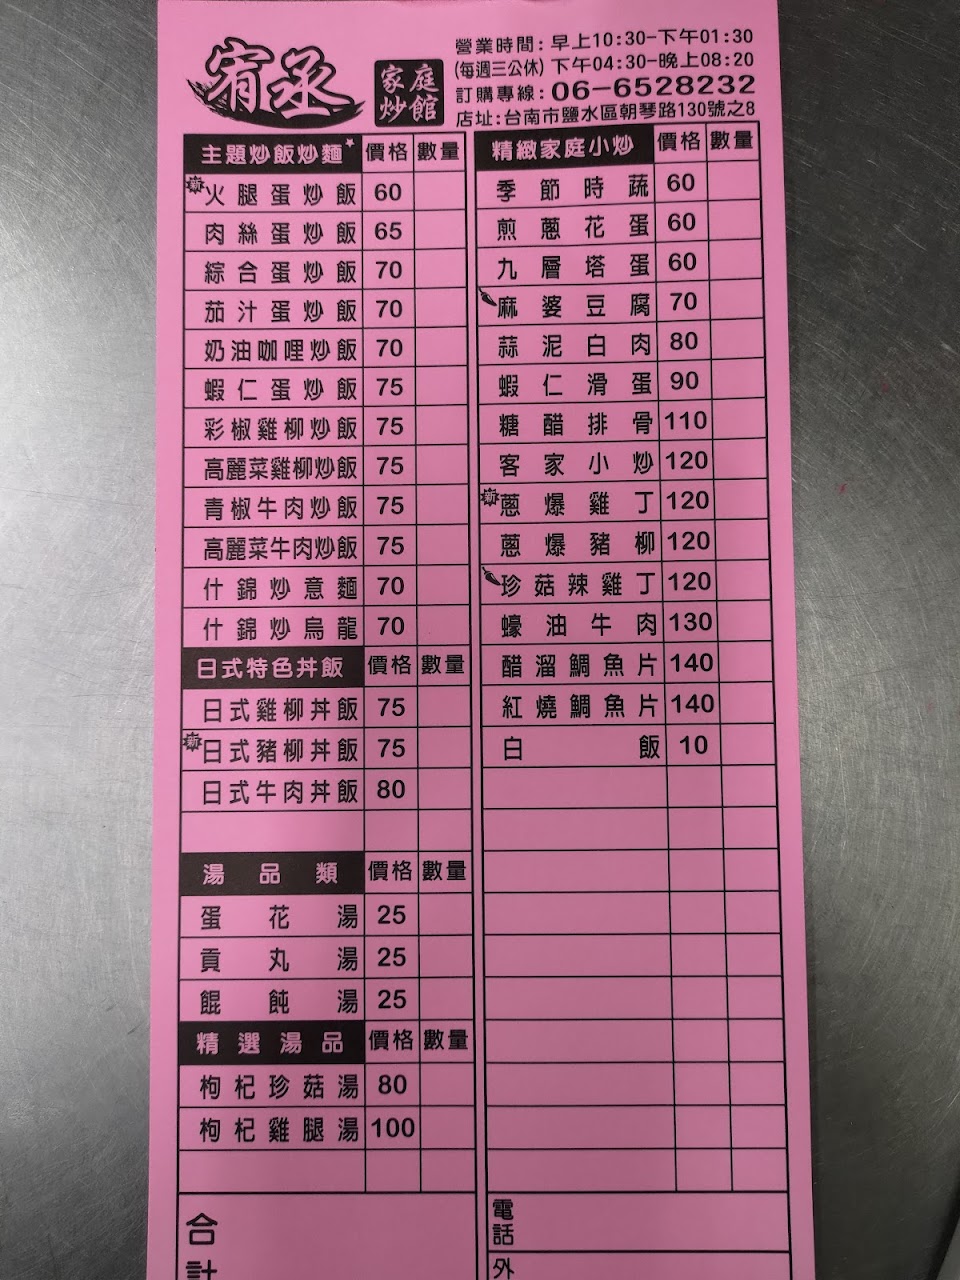 宥丞
家庭
炒館
營業時間:早上10:30-下午01:30
(每週三公休) 下午04:30-晚上08:20
訂購專線:06-6528232
店址:台南市鹽水區朝琴路130號之8
主題炒飯炒麵* 價格 數量
新 火腿蛋炒飯 60
肉絲蛋炒飯 65
綜合蛋炒飯 70
茄汁蛋炒飯 70
奶油咖哩炒飯 70
蝦仁蛋炒飯 75
彩椒雞柳炒飯 75
高麗菜雞柳炒飯 75
青椒牛肉炒飯 75
高麗菜牛肉炒飯 75
什錦炒意麵 70
什錦炒烏龍 70
日式特色丼飯 價格 數量
日式雞柳丼飯 75
新 日式豬柳丼飯 75
日式牛肉丼飯 80
湯品類 價格 數量
蛋花湯 25
貢丸湯 25
餛飩湯 25
精選湯品 價格 數量
枸杞珍菇湯 80
枸杞雞腿湯 100
合計
精緻家庭小炒 價格 數量
季節時蔬 60
煎蔥花蛋 60
九層塔蛋 60
麻婆豆腐 70
蒜泥白肉 80
蝦仁滑蛋 90
糖醋排骨 110
客家小炒 120
新 蔥爆雞丁 120
蔥爆豬柳 120
珍菇辣雞丁 120
蠔油牛肉 130
醋溜鯛魚片 140
紅燒鯛魚片 140
白飯 10
電話
外